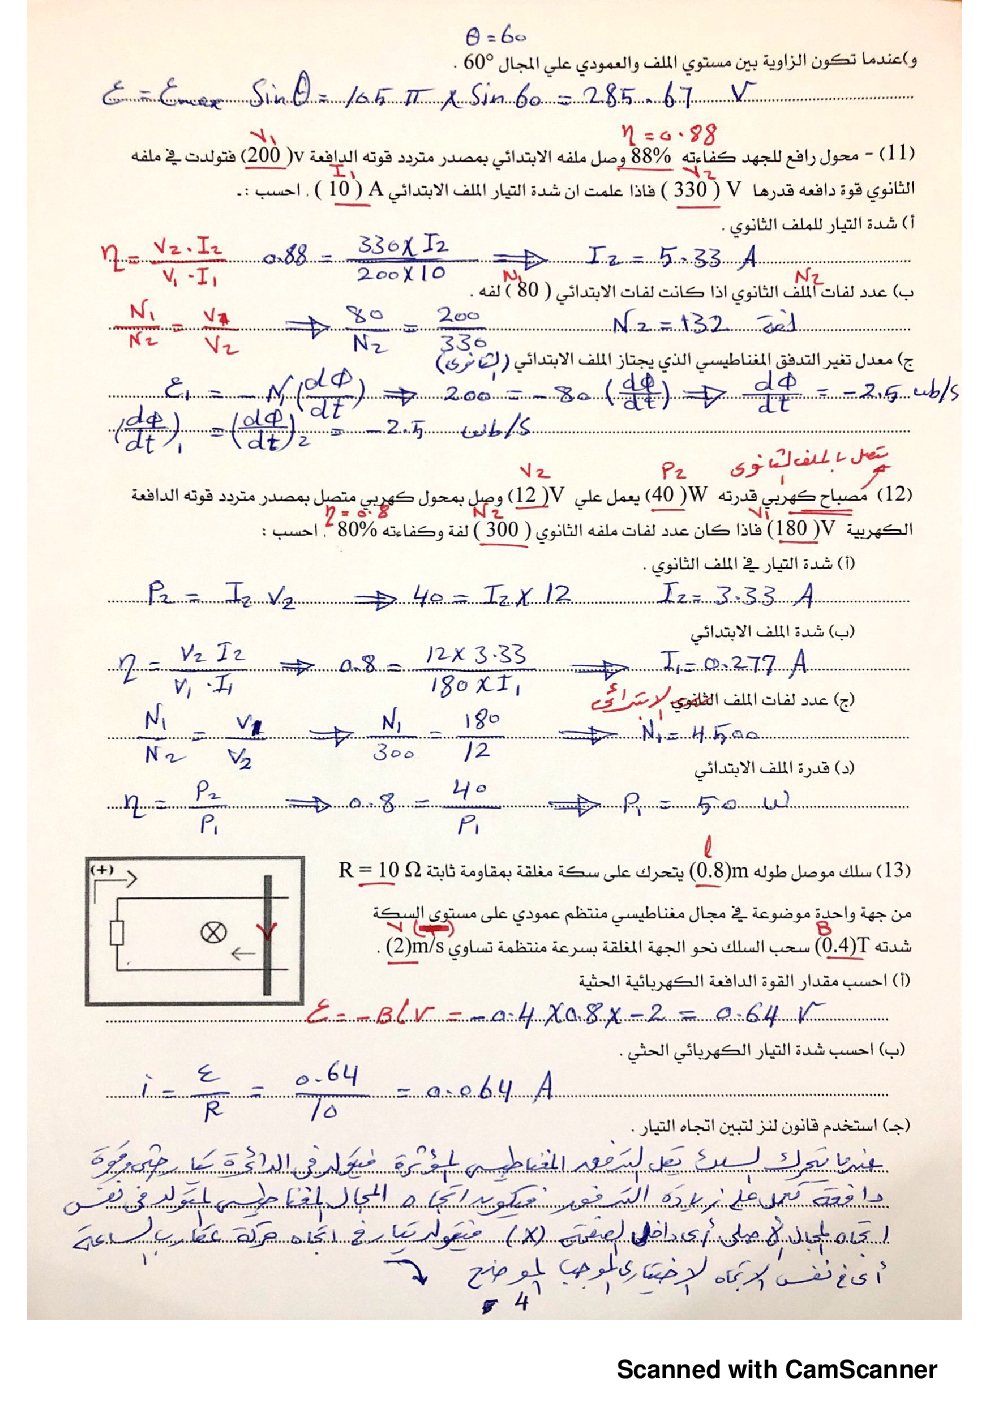 θ = 60
و)عندما تكون الزاوية بين مستوي الملف والعمودي علي المجال 60° .
ε = εmax Sin θ = 105 π x Sin 60 = 285.67 V
η = 0.88
V1
(11) - محول رافع للجهد كفاءته 88% وصل ملفه الابتدائي بمصدر متردد قوته الدافعة v(200) فتولدت في ملفه
I1 V2
الثانوي قوة دافعه قدرها V (330) فاذا علمت ان شدة التيار الملف الابتدائي A (10) . احسب :ـ
أ) شدة التيار للملف الثانوي .
η = V2 . I2 / V1 . I1 0.88 = 330 x I2 / 200 x 10 ⟹ I2 = 5.33 A
N1 N2
ب) عدد لفات الملف الثانوي اذا كانت لفات الابتدائي (80) لفه .
N1 / N2 = V1 / V2 ⟹ 80 / N2 = 200 / 330 N2 = 132 لفة
ج) معدل تغير التدفق المغناطيسي الذي يجتاز الملف الابتدائي (الثانوى)
ε1 = - N1 (dΦ/dt) ⟹ 200 = - 80 (dΦ/dt) ⟹ dΦ/dt = - 2.5 wb/s
(dΦ/dt)1 = (dΦ/dt)2 = - 2.5 wb/s
يتصل بالملف الثانوى
V2 P2
(12) مصباح كهربي قدرته W(40) يعمل علي V(12) وصل بمحول كهربي متصل بمصدر متردد قوته الدافعة
η = 0.8 N2 V1
الكهربية V(180) فاذا كان عدد لفات ملفه الثانوي (300) لفة وكفاءته 80% . احسب :
(أ) شدة التيار في الملف الثانوي .
P2 = I2 V2 ⟹ 40 = I2 x 12 I2 = 3.33 A
(ب) شدة الملف الابتدائي
η = V2 I2 / V1 . I1 ⟹ 0.8 = 12 x 3.33 / 180 x I1 ⟹ I1 = 0.277 A
(ج) عدد لفات الملف الثانوي الابتدائى
N1 / N2 = V1 / V2 ⟹ N1 / 300 = 180 / 12 ⟹ N1 = 4500
(د) قدرة الملف الابتدائي
η = P2 / P1 ⟹ 0.8 = 40 / P1 ⟹ P1 = 50 W
l
(13) سلك موصل طوله m(0.8) يتحرك على سكة مغلقة بمقاومة ثابتة R = 10 Ω
(+)
من جهة واحدة موضوعة في مجال مغناطيسي منتظم عمودي على مستوي السكة
V B
شدته T(0.4) سحب السلك نحو الجهة المغلقة بسرعة منتظمة تساوي m/s(2) .
(أ) احسب مقدار القوة الدافعة الكهربائية الحثية
ε = - B l V = - 0.4 x 0.8 x - 2 = 0.64 V
(ب) احسب شدة التيار الكهربائي الحثي .
i = ε / R = 0.64 / 10 = 0.064 A
(جـ) استخدم قانون لنز لتبين اتجاه التيار .
عندما يتحرك السلك يقل التدفق المغناطيسي المؤثرة فيتولد فى الدائرة تيار حثى وقوة
دافعة تعمل على زيادة التدفق فيكون اتجاه المجال المغناطيسي المتولد فى نفس
اتجاه المجال الأصلى أى داخل الصفحة (X) فيتولد تيار فى اتجاه حركة عقارب الساعة
أى فى نفس الاتجاه الإختيارى الموجب الموضح
4
Scanned with CamScanner